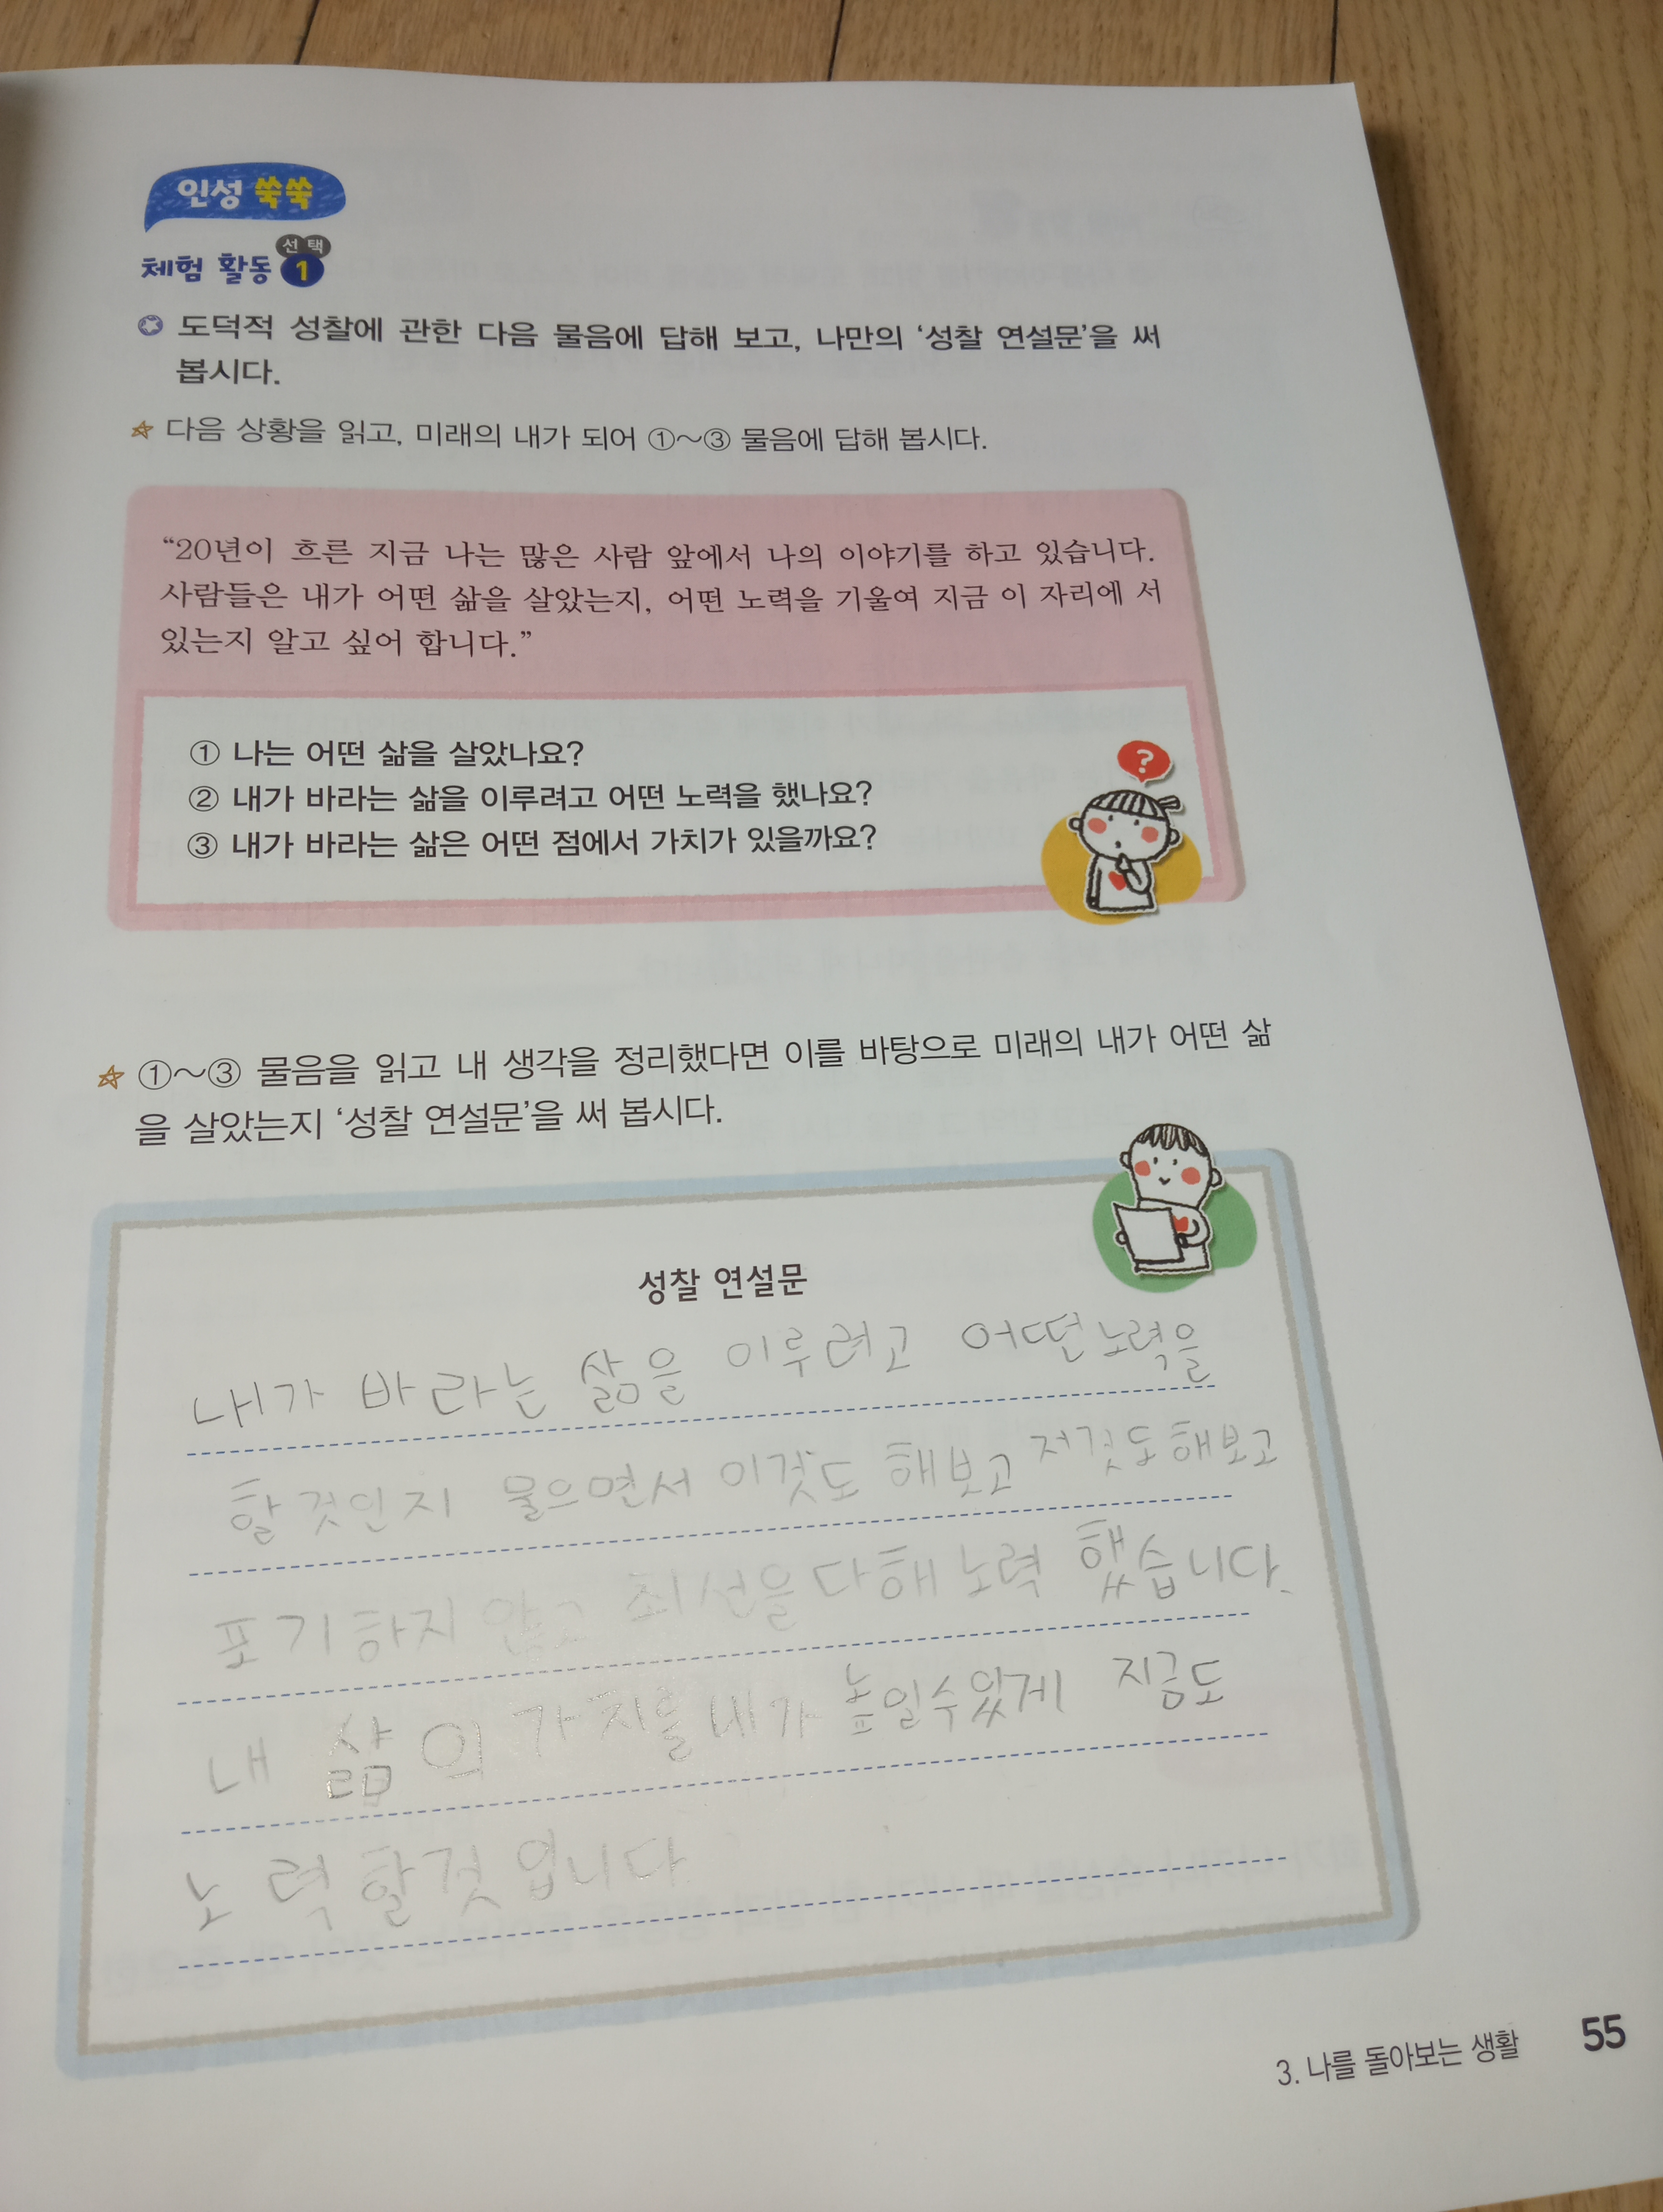 인성 쑥쑥
체험 활동 선택 1
도덕적 성찰에 관한 다음 물음에 답해 보고, 나만의 ‘성찰 연설문’을 써
봅시다.
다음 상황을 읽고, 미래의 내가 되어 ①～③ 물음에 답해 봅시다.
“20년이 흐른 지금 나는 많은 사람 앞에서 나의 이야기를 하고 있습니다.
사람들은 내가 어떤 삶을 살았는지, 어떤 노력을 기울여 지금 이 자리에 서
있는지 알고 싶어 합니다.”
① 나는 어떤 삶을 살았나요?
② 내가 바라는 삶을 이루려고 어떤 노력을 했나요?
③ 내가 바라는 삶은 어떤 점에서 가치가 있을까요?
?
①～③ 물음을 읽고 내 생각을 정리했다면 이를 바탕으로 미래의 내가 어떤 삶
을 살았는지 ‘성찰 연설문’을 써 봅시다.
성찰 연설문
내가 바라는 삶을 이루려고 어떤노력을
할것인지 물으면서 이것도 해보고 저것도해보고
포기하지 않고 최선을다해노력 했습니다.
내 삶의 가치를내가 높일수있게 지금도
노력할것 입니다
3. 나를 돌아보는 생활 55